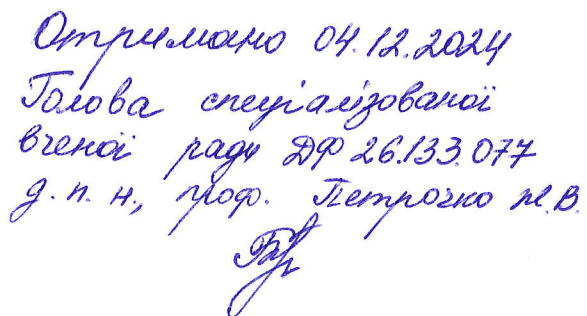 Отримано 04.12.2024
Голова спеціалізованої
вченої ради ДФ 26.133.077
д. п. н., проф. Петрочко Ж.В.